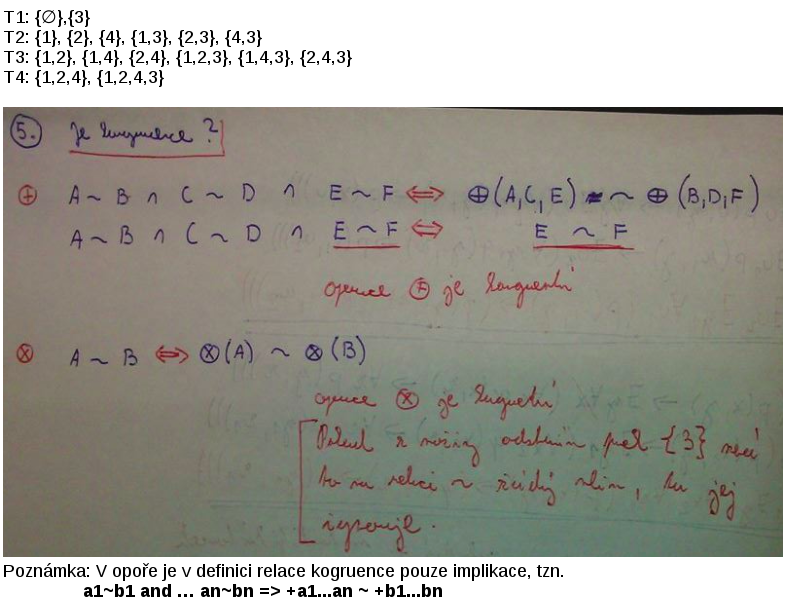 T1: {∅},{3}
T2: {1}, {2}, {4}, {1,3}, {2,3}, {4,3}
T3: {1,2}, {1,4}, {2,4}, {1,2,3}, {1,4,3}, {2,4,3}
T4: {1,2,4}, {1,2,4,3}
5. Je kongruence?
⊕ A ~ B ∧ C ~ D ∧ E ~ F ⇔ ⊕(A,C,E) ~ ⊕(B,D,F)
A ~ B ∧ C ~ D ∧ E ~ F ⇔ E ~ F
operace ⊕ je kongruentní
⊗ A ~ B ⇔ ⊗(A) ~ ⊗(B)
operace ⊗ je kongruentní
Pokud z množiny odstraním prvek {3} nemá
to na relaci ~ žádný vliv, ta jej
ignoruje.
Poznámka: V opoře je v definici relace kogruence pouze implikace, tzn.
a1~b1 and ... an~bn => +a1...an ~ +b1...bn